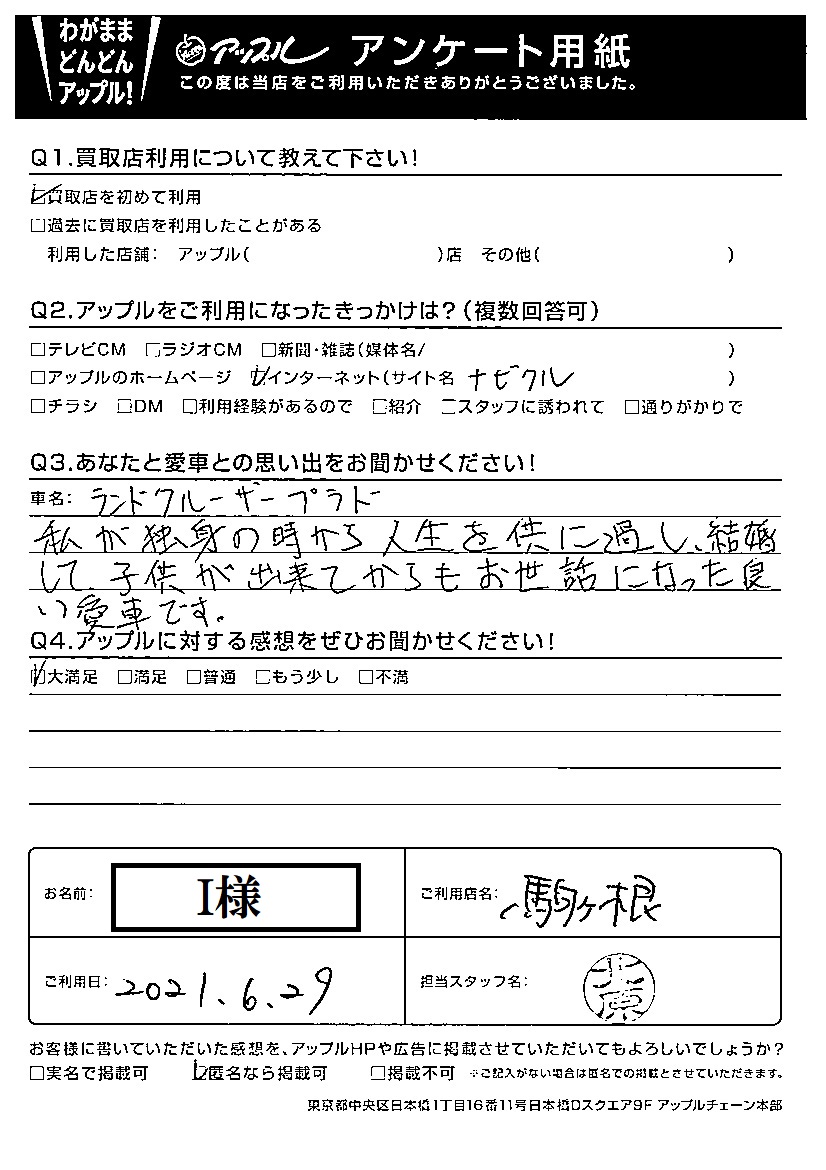 わがまま
どんどん
アップル!
アップル アンケート用紙
この度は当店をご利用いただきありがとうございました。
Q1.買取店利用について教えて下さい!
☑買取店を初めて利用
□過去に買取店を利用したことがある
利用した店舗: アップル( )店 その他( )
Q2.アップルをご利用になったきっかけは?(複数回答可)
□テレビCM □ラジオCM □新聞・雑誌(媒体名/ )
□アップルのホームページ ☑インターネット(サイト名 ナビクル )
□チラシ □DM □利用経験があるので □紹介 □スタッフに誘われて □通りがかりで
Q3.あなたと愛車との思い出をお聞かせください!
車名: ランドクルーザープラド
私が独身の時から人生を供に過し、結婚
して、子供が出来てからもお世話になった良
い愛車です。
Q4.アップルに対する感想をぜひお聞かせください!
☑大満足 □満足 □普通 □もう少し □不満
お名前: I様
ご利用店名: 駒ヶ根
ご利用日: 2021.6.29
担当スタッフ名: 北原
お客様に書いていただいた感想を、アップルHPや広告に掲載させていただいてもよろしいでしょうか?
□実名で掲載可 ☑匿名なら掲載可 □掲載不可 ※ご記入がない場合は匿名での掲載とさせていただきます。
東京都中央区日本橋1丁目16番11号日本橋Dスクエア9F アップルチェーン本部